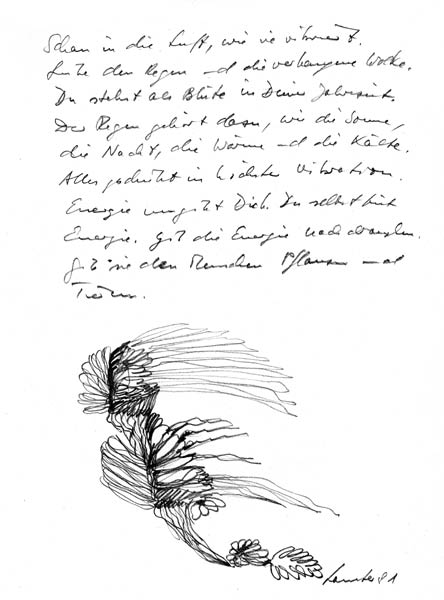 Schau in die Luft, wie sie vibriert.
Liebe den Regen und die verhangene Wolke.
Du stehst als Blüte in Deiner Jahreszeit.
Der Regen gehört dazu, wie die Sonne,
die Nacht, die Wärme und die Kälte.
Alles gedeiht in höchster Vibration.
Energie umgibt Dich. Du selbst bist
Energie. Gib die Energie nach draußen.
Gib sie den Menschen Pflanzen und
Tieren.
81